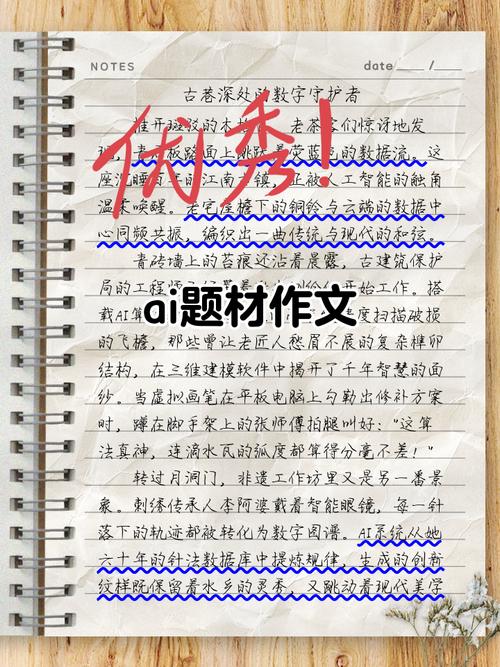 NOTES date ___ / ___
古巷深处的数字守护者
推开斑驳的木 老茶客们惊讶地发
青 板路面上跳跃着荧蓝色的数据流。这
座沉睡百年的江南 镇,正被人工智能的触角
温柔唤醒。老宅屋檐下的铜铃与云端的数据中
心同频共振,编织出一曲传统与现代的和弦。
青砖墙上的苔痕还沾着晨露,古建筑保护
局的工程 开始工作。搭
载AI算 度扫描破损
的飞檐,那些曾让老匠人愁眉不展的复杂榫卯
结构,在三维建模软件中揭开了千年智慧的面
纱。当虚拟画笔在平板电脑上勾勒出修补方案
时,蹲在脚手架上的张师傅拍腿叫好:"这算
法真神,连滴水瓦的弧度都算得分毫不差!"
转过月洞门,非遗工作坊里又是另一番景
象。刺绣传承人李阿婆戴着智能眼镜,每一针
落下的轨迹都被转化为数字图谱。AI系统从她
六十年的针法数据库中提炼规律,生成的创新
纹样既保留着水乡的灵秀,又跳动着现代美学
优秀!
ai题材作文